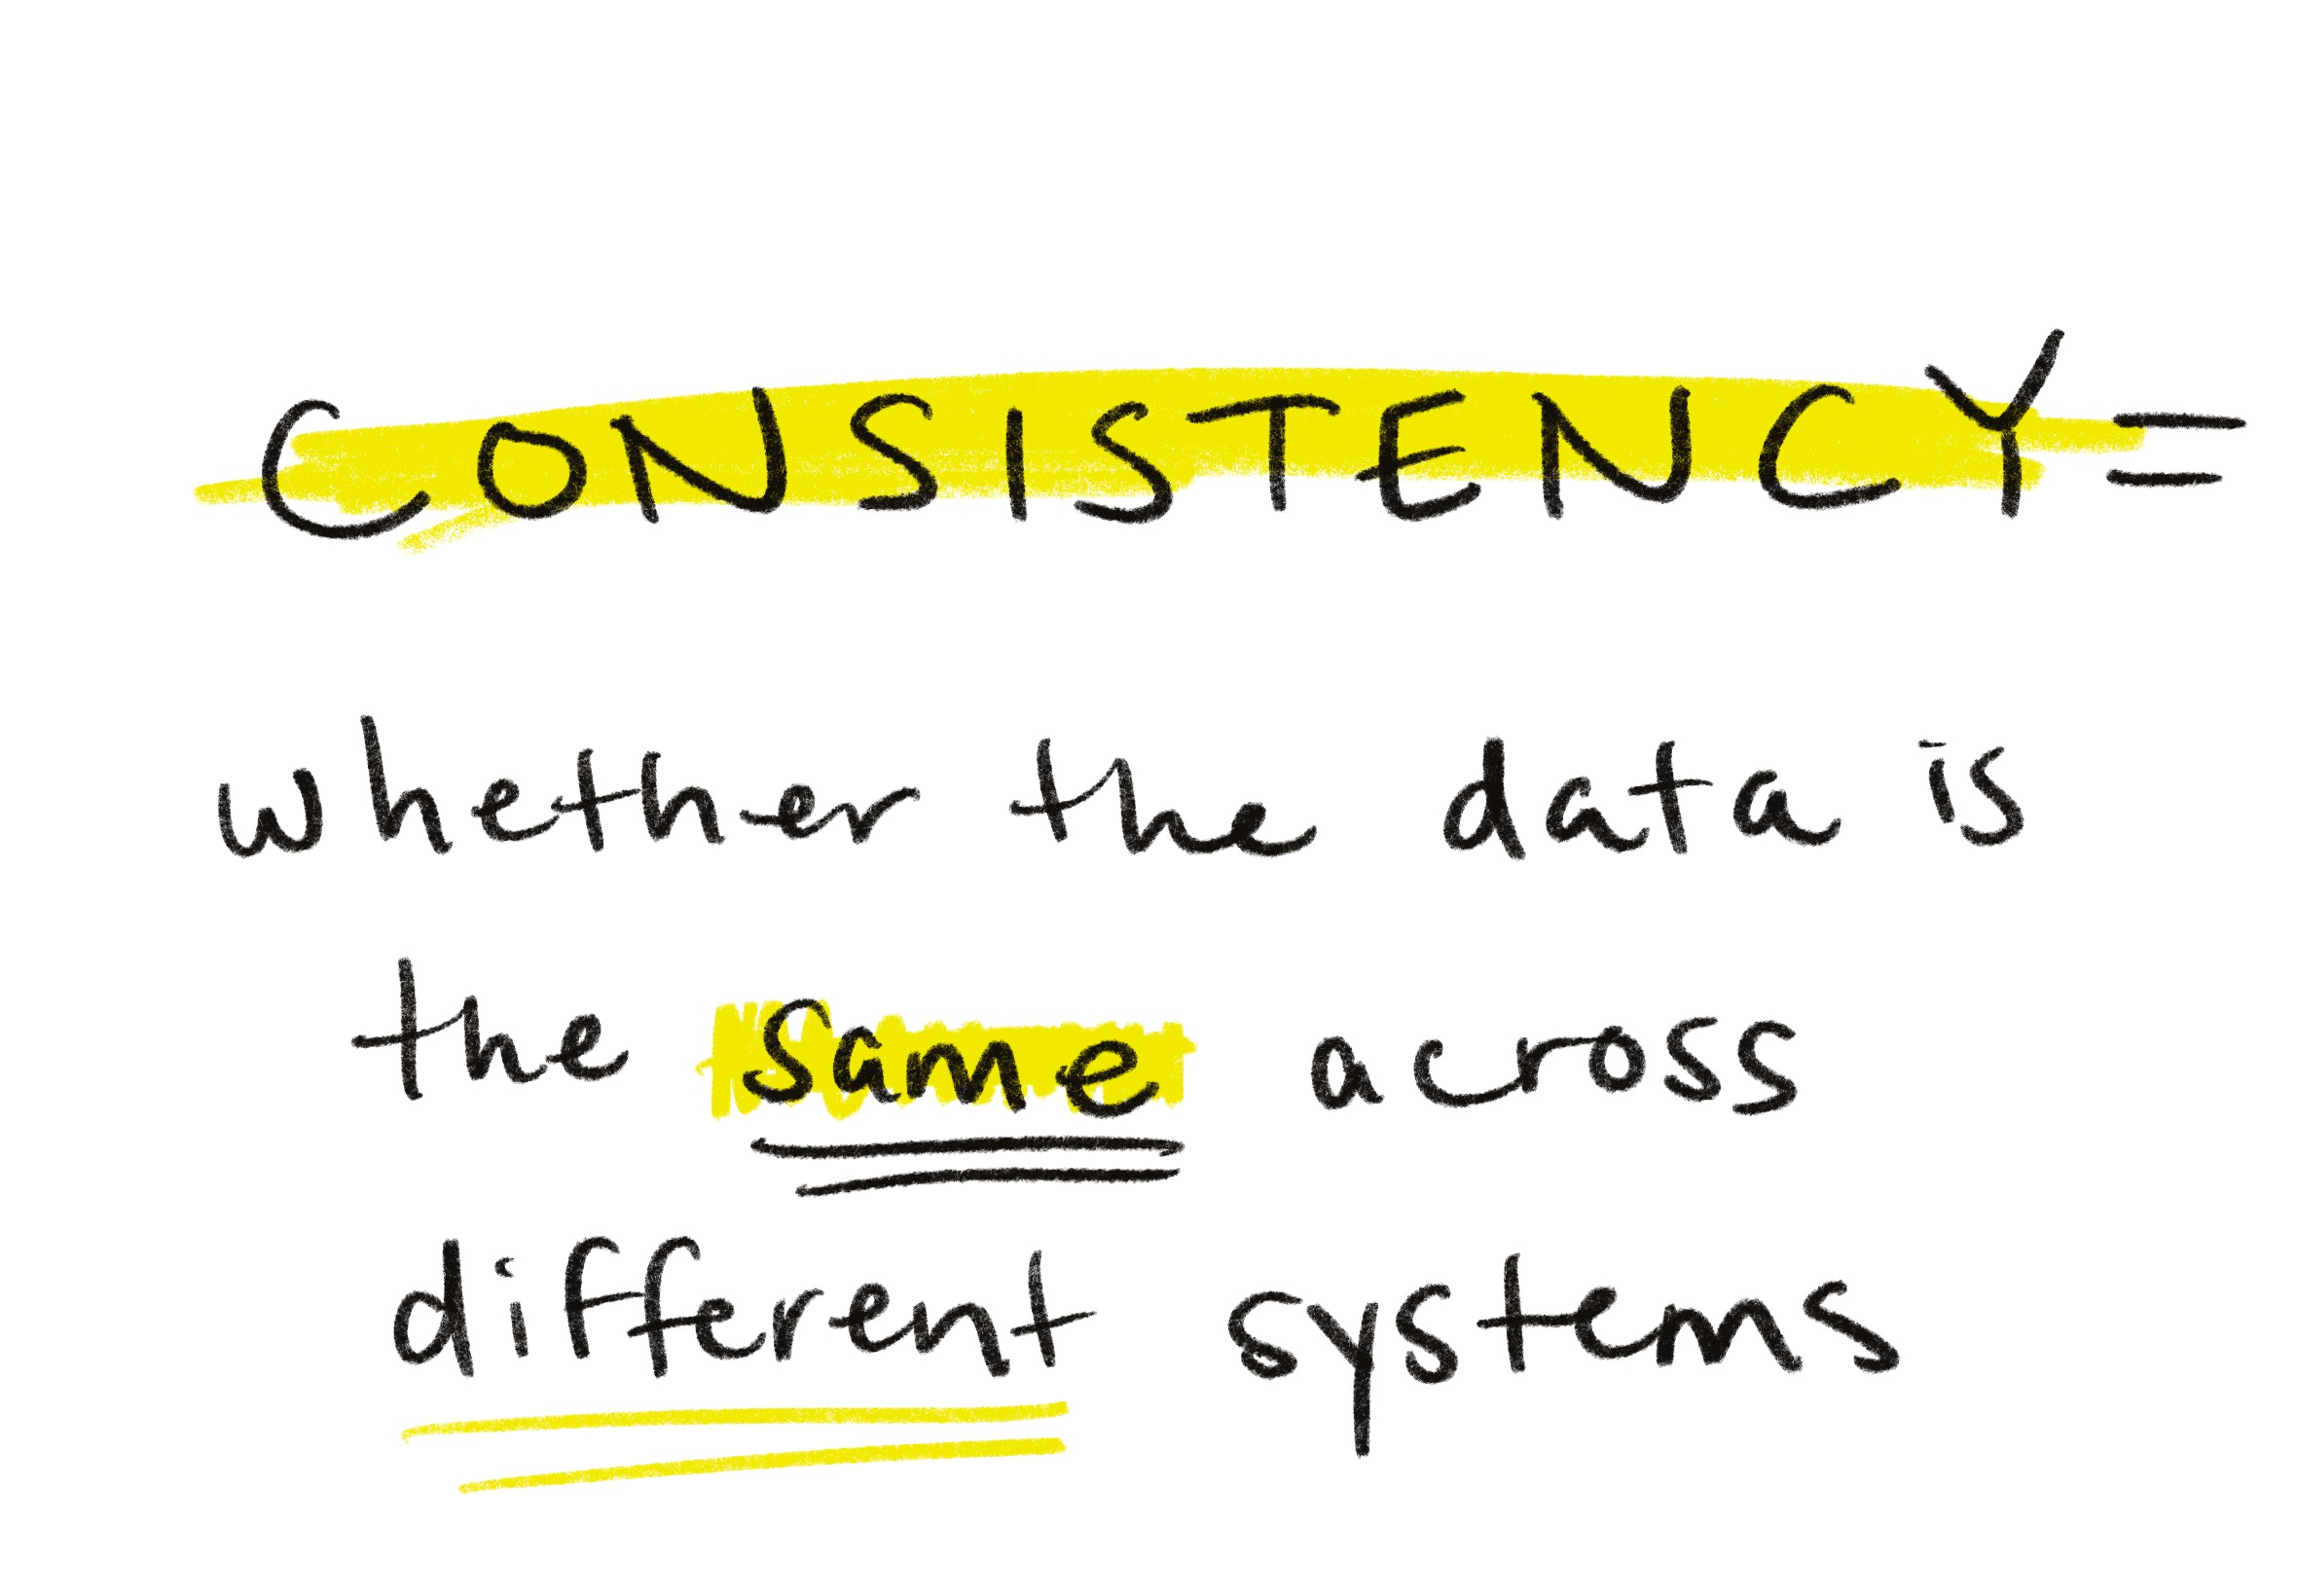 CONSISTENCY=
whether the data is
the same across
different systems